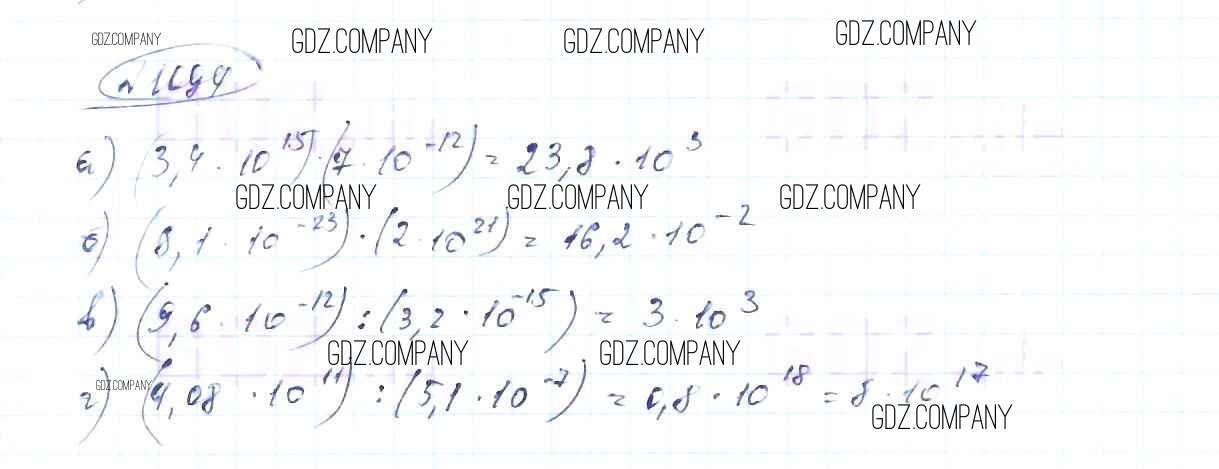 GDZ.COMPANY GDZ.COMPANY GDZ.COMPANY GDZ.COMPANY
а) (3,4 · 10¹⁵) · (7 · 10⁻¹²) = 23,8 · 10³
GDZ.COMPANY GDZ.COMPANY GDZ.COMPANY
б) (8,1 · 10⁻²³) · (2 · 10²¹) = 16,2 · 10⁻²
в) (9,6 · 10⁻¹²) : (3,2 · 10⁻¹⁵) = 3 · 10³
GDZ.COMPANY GDZ.COMPANY
GDZ.COMPANY
г) (4,08 · 10¹¹) : (5,1 · 10⁻⁷) = 0,8 · 10¹⁸ = 8 · 10¹⁷
GDZ.COMPANY